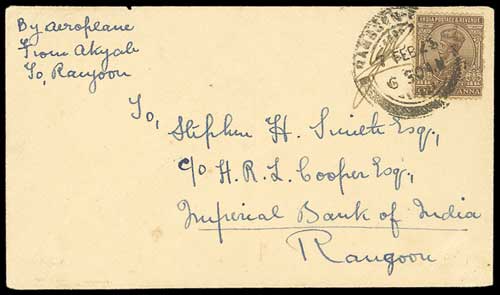 By aeroplane
From Akyab
To, Rangoon
INDIA POSTAGE & REVENUE
ANNA
FEB 23
To,
Stephen H. Smith Esq.,
c/o H. R. L. Cooper Esq.,
Imperial Bank of India
Rangoon